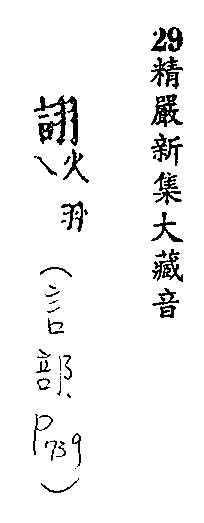 29精嚴新集大藏音
詡火羽(言部、P739)